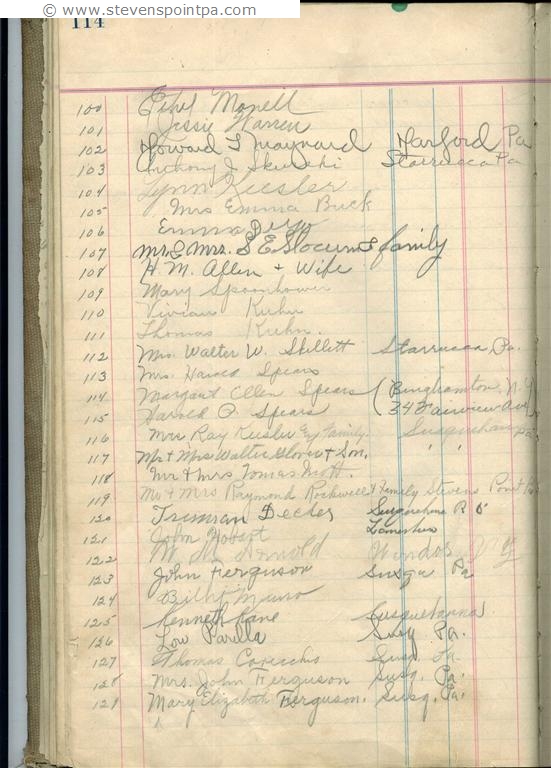 © www.stevenspointpa.com
114
100 Ethel Monell
101 Jessie Warren
102 Howard L Maynard Harford Pa
103 Anthony J Starrucca Pa
104 Lynn Keesler
105 Mrs Emma Buck
106 Emma
107 Mr & Mrs. S E Slocum & family
108 H. M. Allen + Wife
109 Mary Spoonhower
110 Vivian Kuhn
111 Thomas Kuhn.
112 Mrs. Walter W. Skillett Starrucca, Pa.
113 Mrs. Harold Spears
114 Margaret Ellen Spears ( Binghamton, N.Y.
115 Harold P. Spears ( 34 Fairview Ave
116 Mrs Ray Keesler & Family. Susquehanna Pa
117 Mr + Mrs. Walter Glover + Son. " "
118 Mr + Mrs Tomas
119 Mr + Mrs Raymond Rockwell & Family Stevens Point Pa
120 Truman Decker Susquehanna R D
121 John Hobart Lanesboro
122 W. M. Arnold Windsor N Y
123 John Ferguson Susqu Pa
124 Billy Munro
125 Kenneth Kane Susquehanna
126 Lou Parilla Susq Pa.
127 Thomas Susq. Pa.
128 Mrs. John Ferguson Susq. Pa.
129 Mary Elizabeth Ferguson. Susq. Pa.